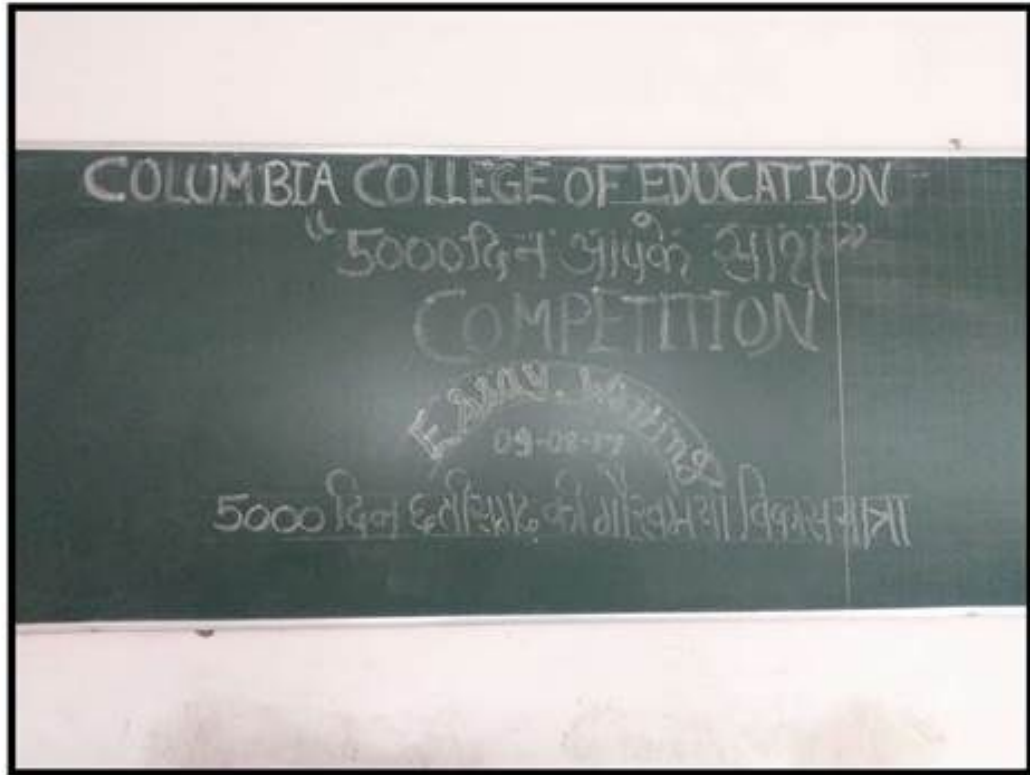 COLUMBIA COLLEGE OF EDUCATION
"5000 दिन आपके साथ"
COMPETITION
Essay Writing
09-08-17
5000 दिन छत्तीसगढ़ के